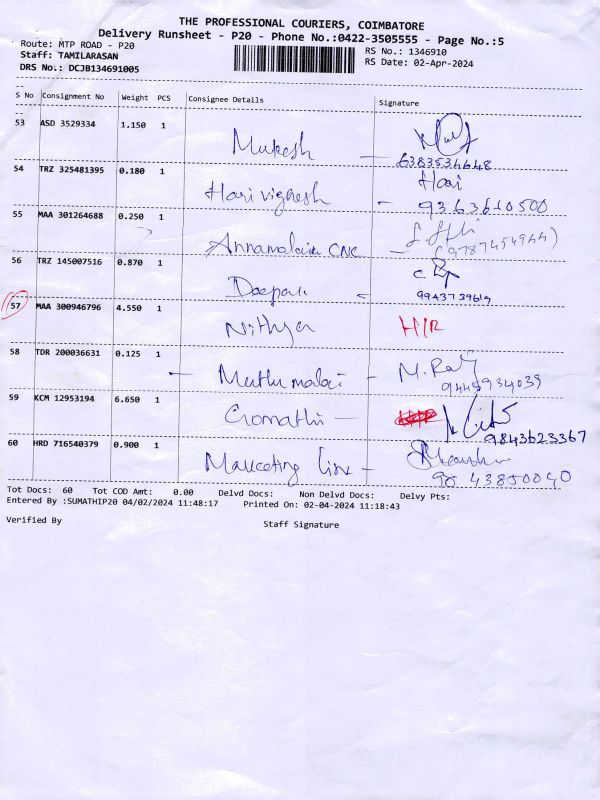 THE PROFESSIONAL COURIERS, COIMBATORE
Delivery Runsheet - P20 - Phone No.:0422-3505555 - Page No.:5
Route: MTP ROAD - P20
RS No.: 1346910
Staff: TAMILARASAN
RS Date: 02-Apr-2024
DRS No.: DCJB134691005
S No Consignment No Weight PCS Consignee Details Signature
53 ASD 3529334 1.150 1 Mukesh - 6383534648
54 TRZ 325481395 0.180 1 Hari vignesh - Hari
9363610500
55 MAA 301264688 0.250 1 Annamalai CNC - (9787454944)
56 TRZ 145007516 0.870 1 Deepak -
57 MAA 300946796 4.550 1 Nithya H/R
58 TDR 200036631 0.125 1 - Muthu malai - M. Raj
9445934039
59 KCM 12953194 6.650 1 Gomathi -
9843623367
60 HRD 716540379 0.900 1 Marketing line -
9543850040
Tot Docs: 60 Tot COD Amt: 0.00 Delvd Docs: Non Delvd Docs: Delvy Pts:
Entered By :SUMATHIP20 04/02/2024 11:48:17 Printed On: 02-04-2024 11:18:43
Verified By Staff Signature